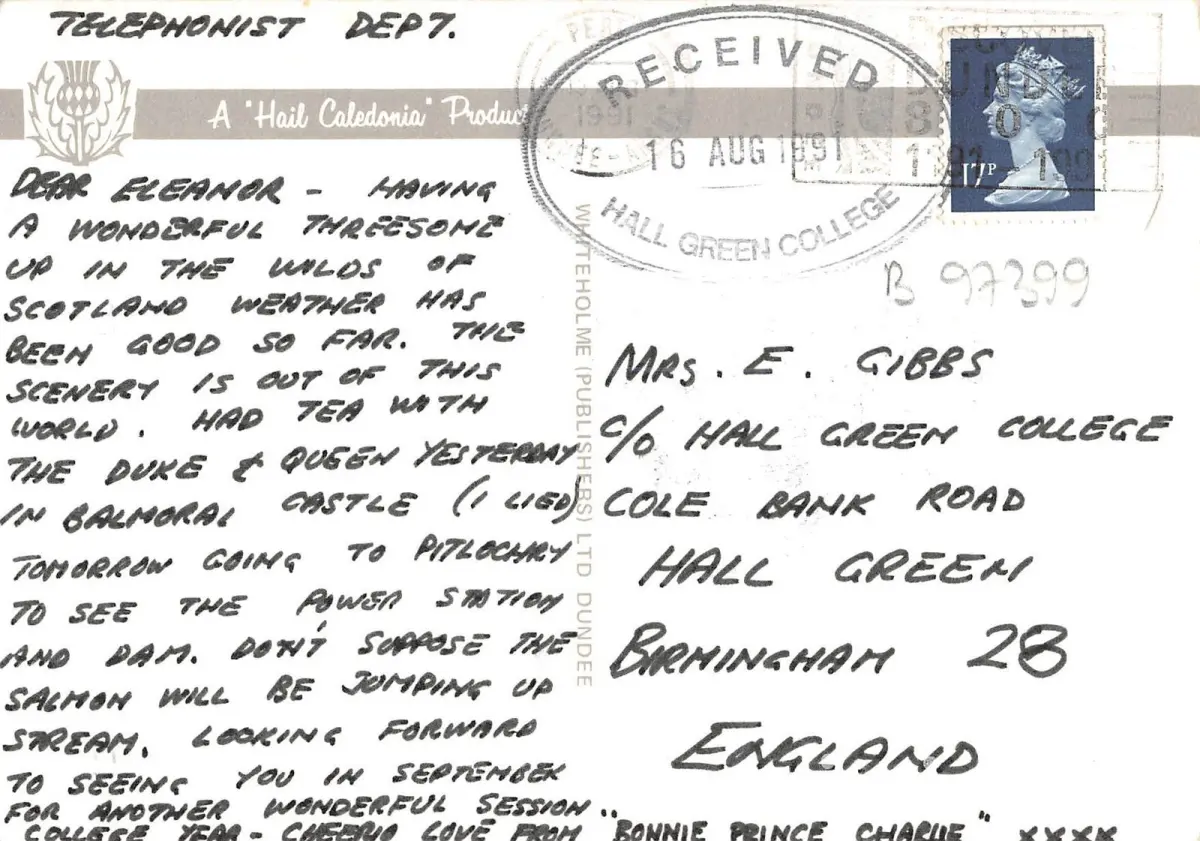 TELEPHONIST DEPT.
A "Hail Caledonia" Product
DEAR ELEANOR - HAVING
A WONDERFUL THREESOME
UP IN THE WILDS OF
SCOTLAND WEATHER HAS
BEEN GOOD SO FAR. THE
SCENERY IS OUT OF THIS
WORLD. HAD TEA WITH
THE DUKE & QUEEN YESTERDAY
IN BALMORAL CASTLE (I LIED)
TOMORROW GOING TO PITLOCHRY
TO SEE THE POWER STATION
AND DAM. DON'T SUPPOSE THE
SALMON WILL BE JUMPING UP
STREAM. LOOKING FORWARD
TO SEEING YOU IN SEPTEMBER
FOR ANOTHER WONDERFUL SESSION
COLLEGE YEAR - CHEERIO LOVE FROM "BONNIE PRINCE CHARLIE" XXXX
WHITEHOLME (PUBLISHERS) LTD DUNDEE
RECEIVED
16 AUG 1991
HALL GREEN COLLEGE
1991
DUNDEE
1191-199
17P
B 97399
MRS. E. GIBBS
C/O HALL GREEN COLLEGE
COLE BANK ROAD
HALL GREEN
BIRMINGHAM 28
ENGLAND